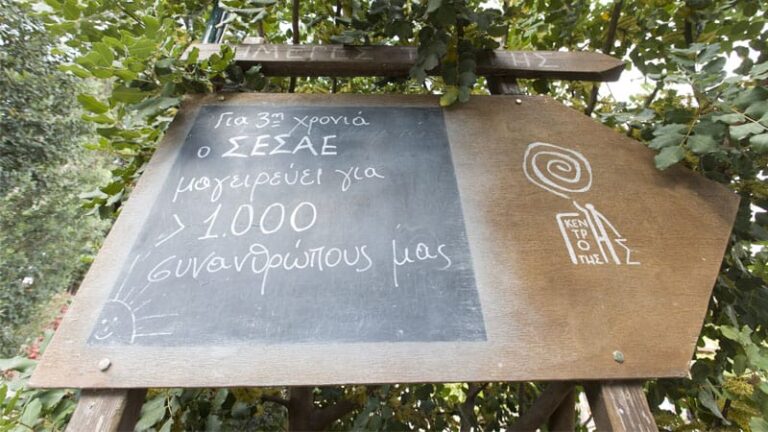 Για 3η χρονιά
ο ΣΕΣΑΕ
μαγειρεύει για
> 1.000
συνανθρώπους μας
ΚΕΝ
ΤΡΟ
ΓΗΣ